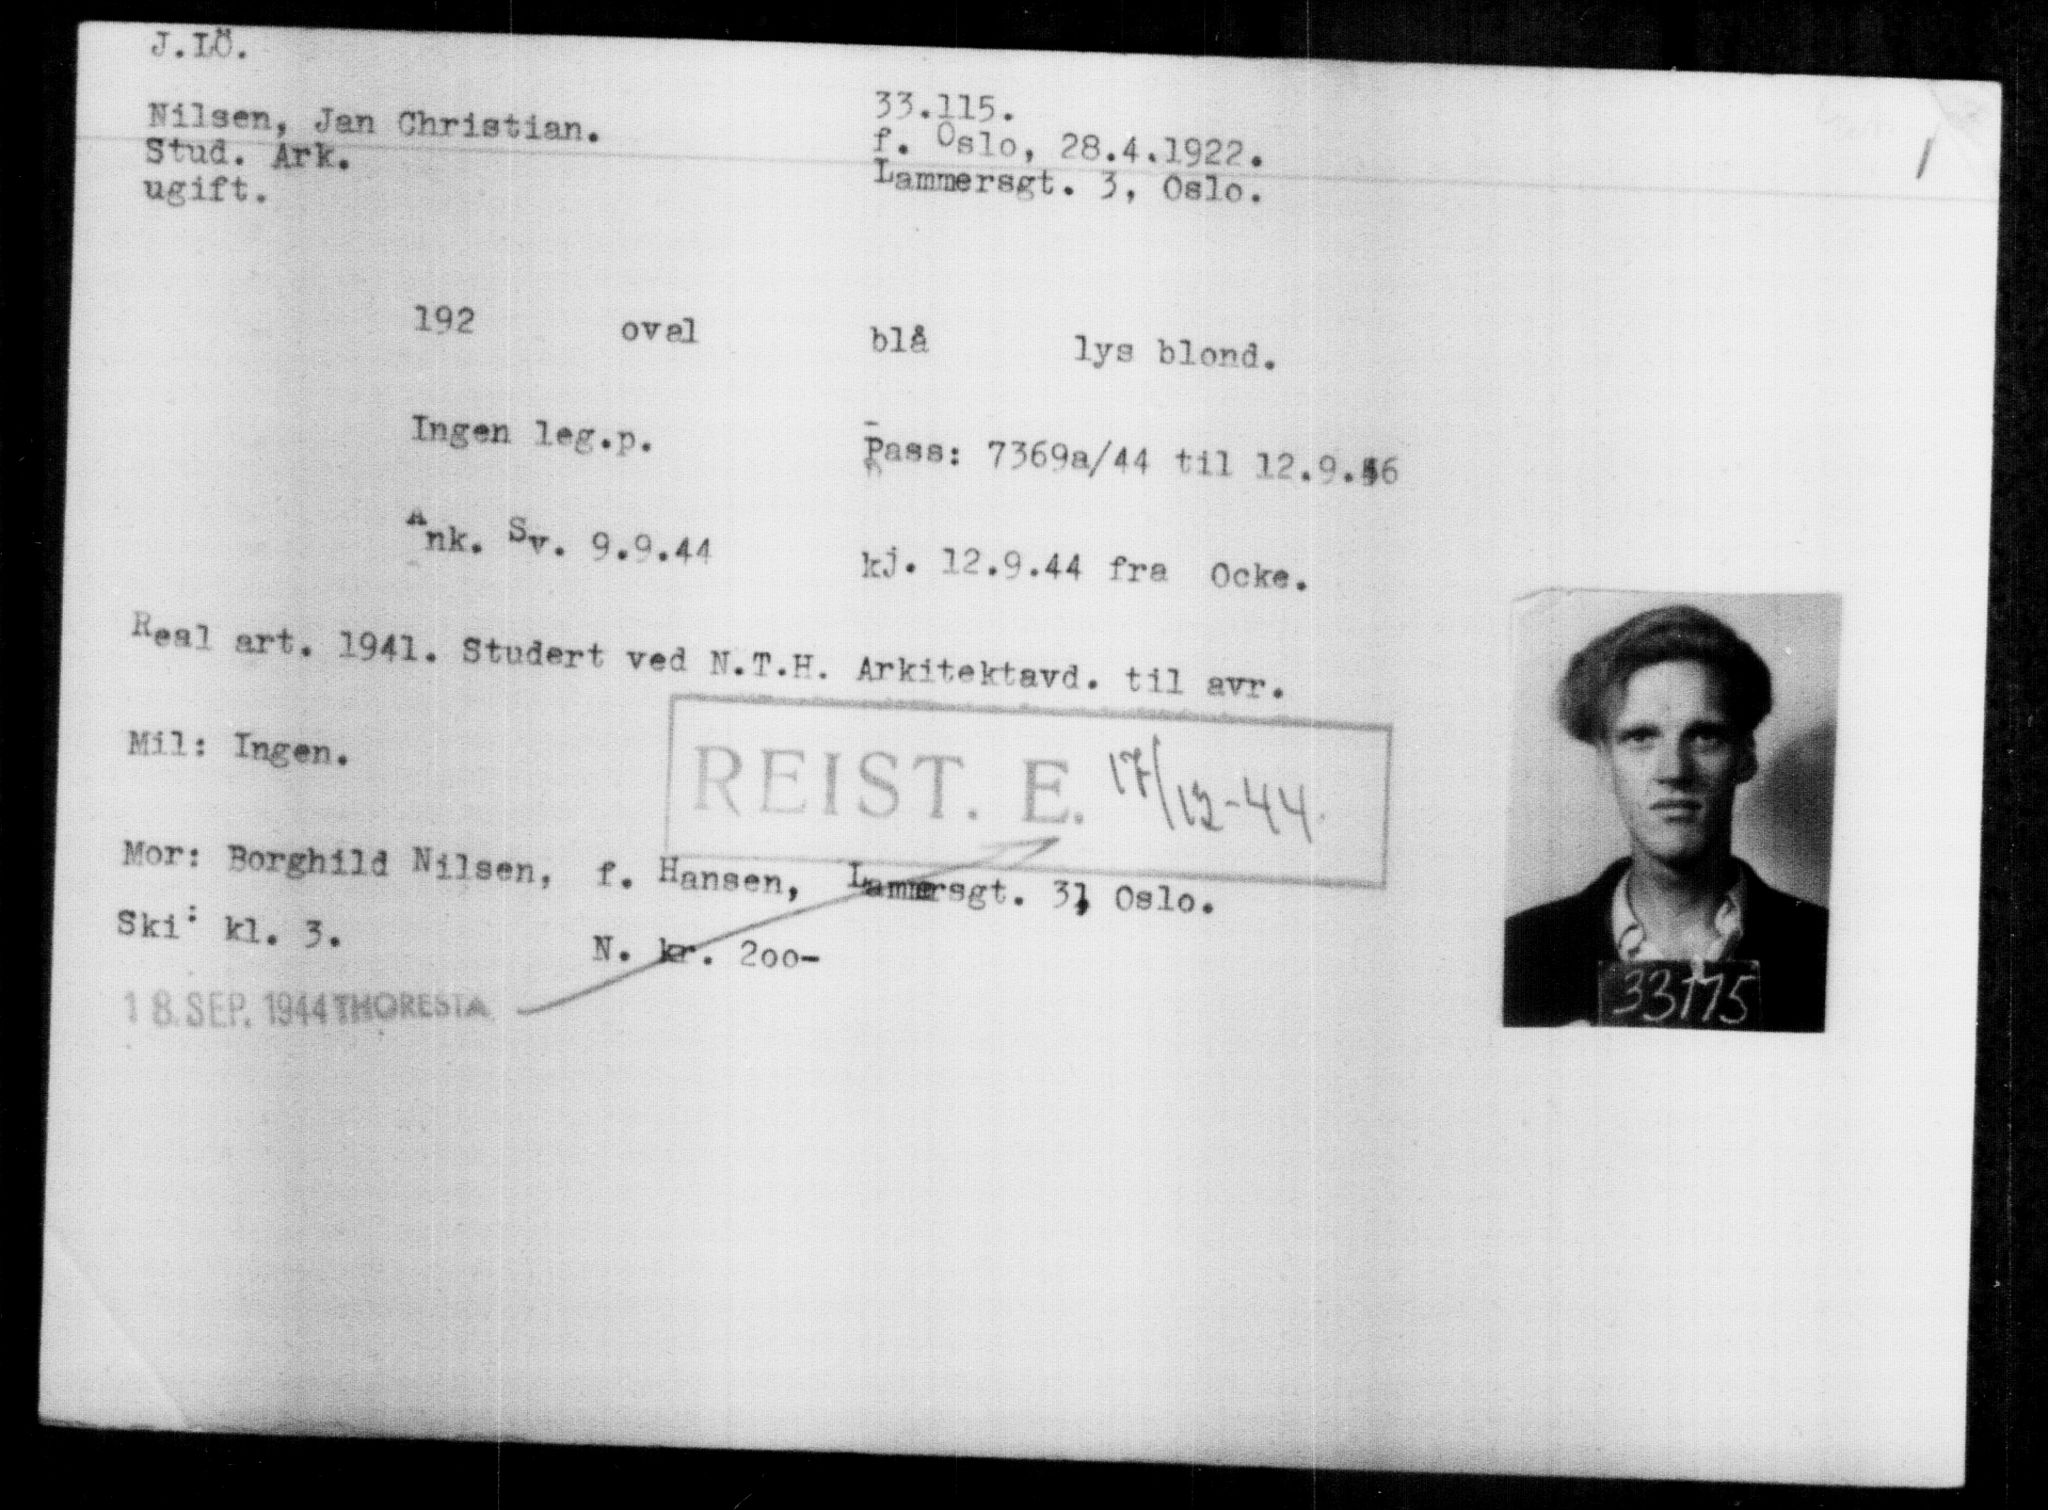 J.LÖ.
Nilsen, Jan Christian.
33.115.
Stud. Ark.
f. Oslo, 28.4.1922.
ugift.
Lammersgt. 3, Oslo.
1
192 oval blå lys blond.
Ingen leg.p.
Pass: 7369a/44 til 12.9.46
Ank. Sv. 9.9.44
kj. 12.9.44 fra Ocke.
Real art. 1941. Studert ved N.T.H. Arkitektavd. til avr.
Mil: Ingen.
REIST. E. 17/12-44.
Mor: Borghild Nilsen, f. Hansen, Lammersgt. 3, Oslo.
Ski: kl. 3.
N. kr. 200-
18. SEP. 1944 THORESTA
33175